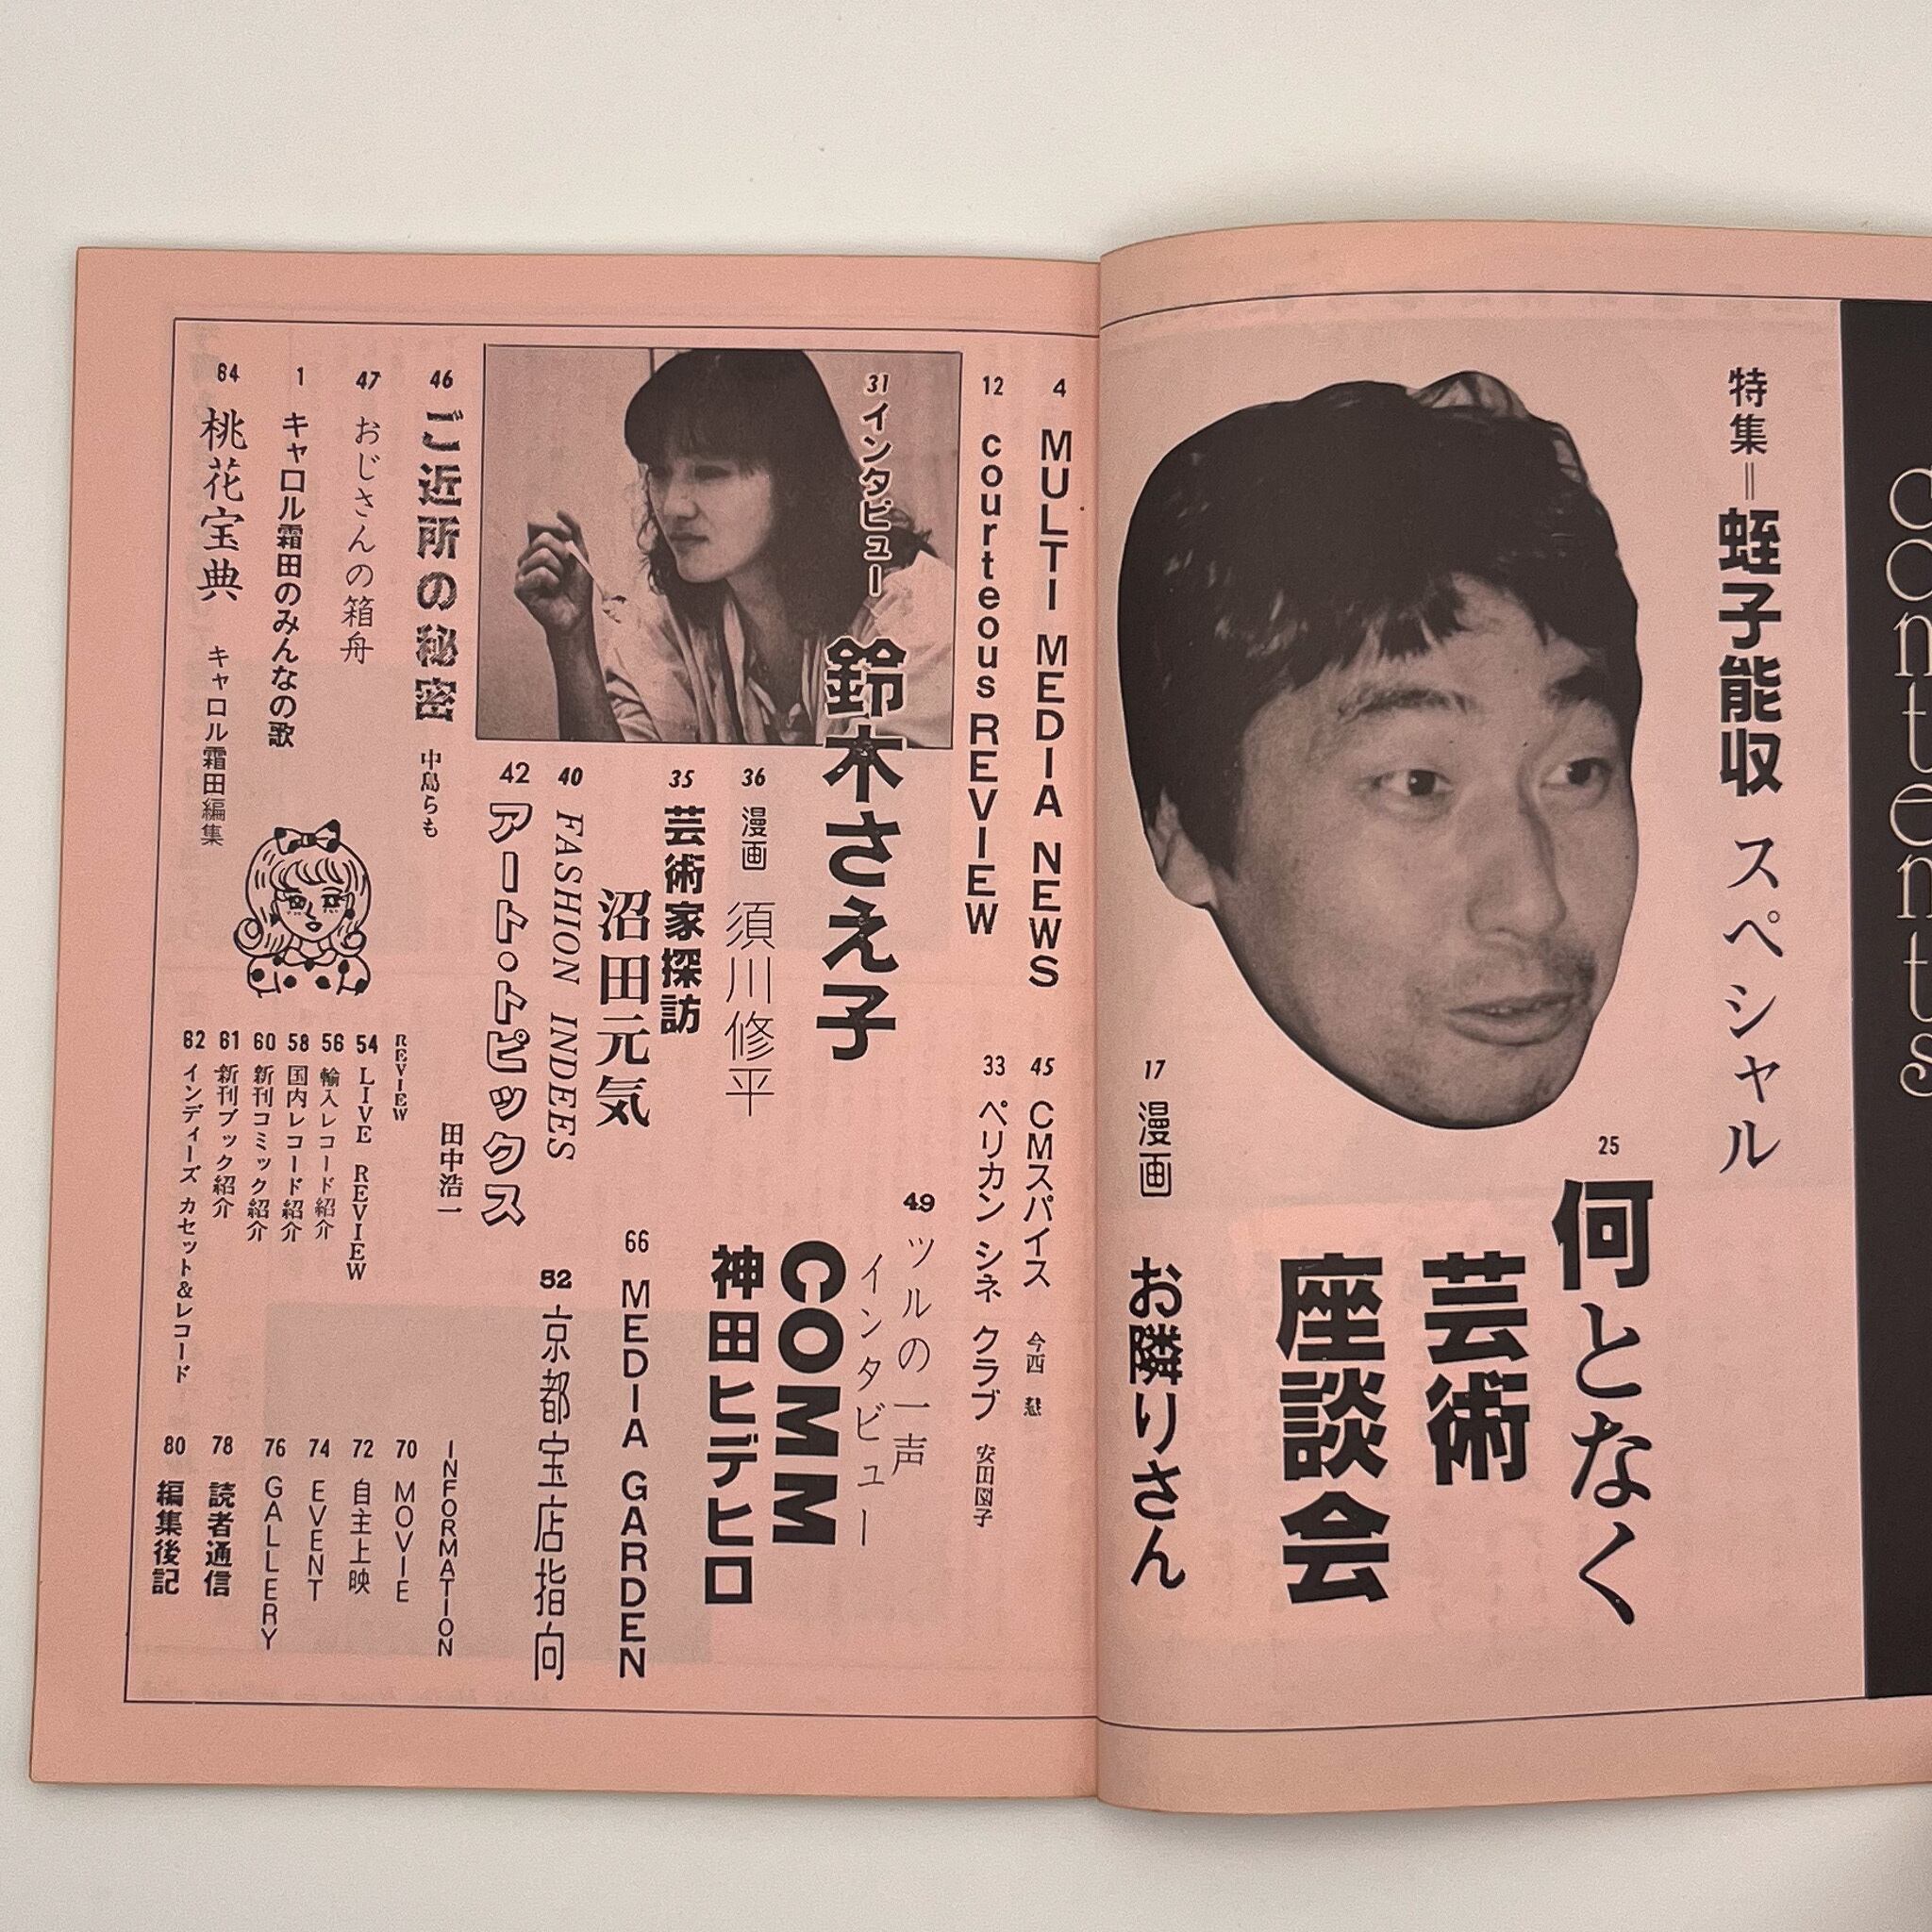 contents
特集=蛭子能収 スペシャル
25
何となく
芸術
座談会
17 漫画 お隣りさん
4 MULTI MEDIA NEWS
12 courteous REVIEW
31 インタビュー 鈴木さえ子
45 CMスパイス 今西 懇
33 ペリカン シネ クラブ 安田圀子
36 漫画 須川修平
35 芸術家探訪
沼田元気
40 FASHION INDEES
42 アート・トピックス
田中浩一
49 ツルの一声
インタビュー
COMM
神田ヒデヒロ
66 MEDIA GARDEN
52 京都宝店指向
46 ご近所の秘密 中島らも
47 おじさんの箱舟
1 キャロル霜田のみんなの歌
64 桃花宝典 キャロル霜田編集
REVIEW
54 LIVE REVIEW
56 輸入レコード紹介
58 国内レコード紹介
60 新刊コミック紹介
61 新刊ブック紹介
62 インディーズ カセット&レコード
INFORMATION
70 MOVIE
72 自主上映
74 EVENT
76 GALLERY
78 読者通信
80 編集後記